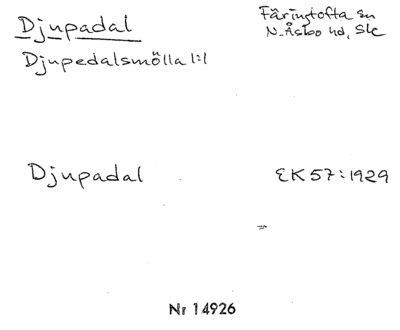 Djupadal
Färingtofta sn
N. Åsbo hd, Sk
Djupedalsmölla 1:1
Djupadal
EK 57:1929
Nr 14926